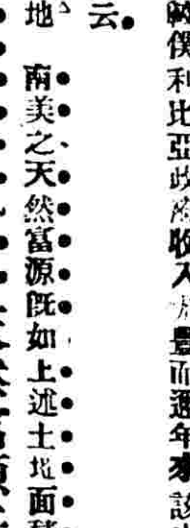 僕利比亞政府收入尚豐而邇年來該
云
地
南美之天然富源既如上述土地面